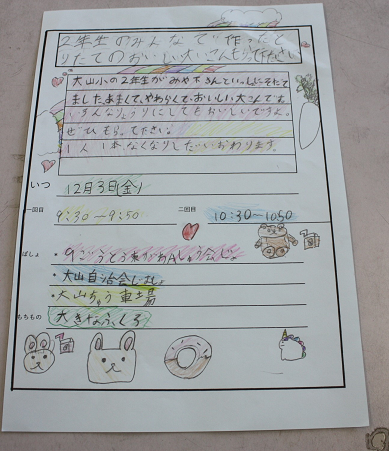 2年生のみんなで作ったと
りたてのおいしい大こんもらて下さい
大山小の2年生がみや下さんといっしょにそだて
ました。あまくて、やわらかくて、おいしい大こんです。
いろんなりょうりにしてもおいしいですよ。
ぜひもらって下さい。
1人1本、なくなりしだいおわります。
いつ 12月3日(金)
一回目 9:30〜9:50 二回目 10:30〜1050
ばしょ
・大山自治会
・大山ちゅう車場
もちもの 大きなふくろ